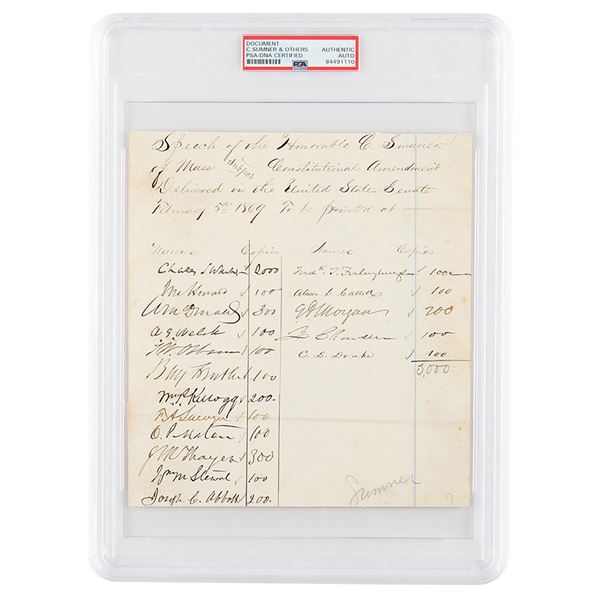 DOCUMENT AUTHENTIC
C. SUMNER & OTHERS AUTO
PSA/DNA CERTIFIED 84491110
PSA
Speech of the Honorable C. Sumner
of Mass Subject Constitutional Amendment
Delivered in the United States Senate
February 5th 1869 To be printed at
Names Copies Names Copies
Charles Sumner 2000 Fredk. T. Frelinghuysen 100
J M Howard 100 Alexr G Cattell 100
300 E D Morgan 200
A S Welch 100 Z Chandler 100
T. W. Osborn 100 C. D. Drake 100
100 5,000
Wm P. Kellogg 200
F A Sawyer 100
O. P. Morton 100
J M Thayer 300
Wm M Stewart 100
Joseph C. Abbott 200
Sumner